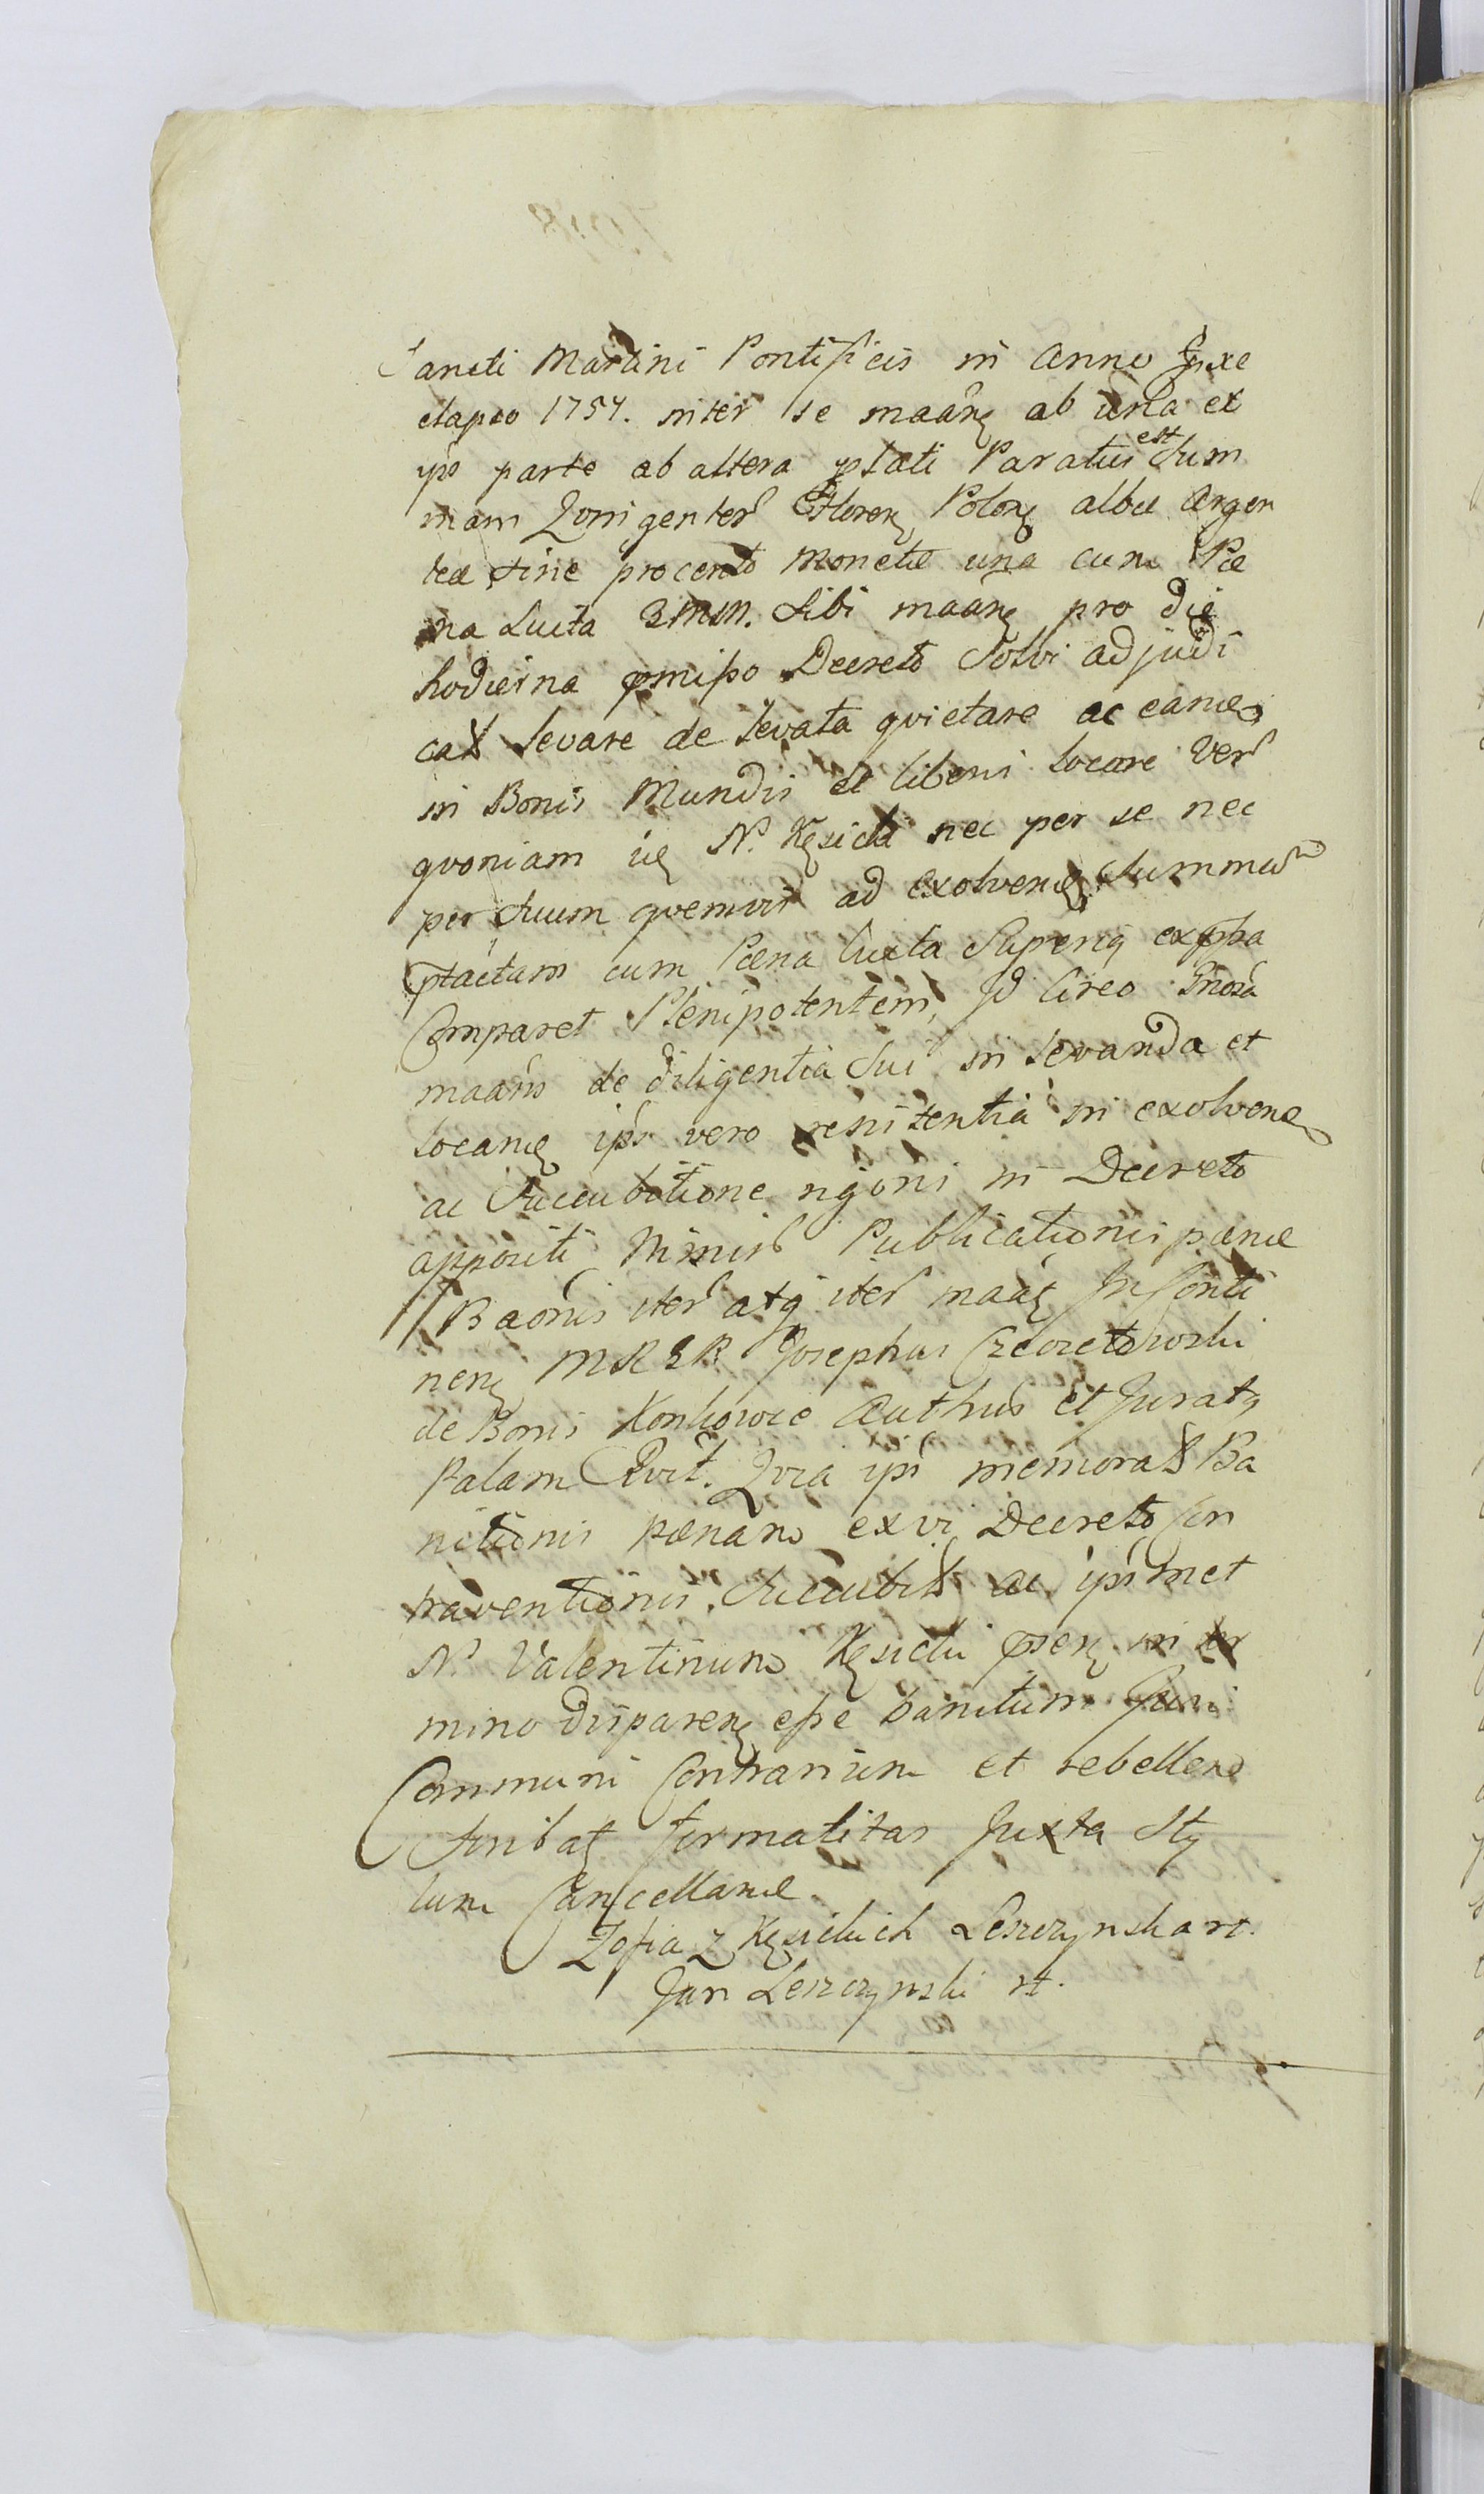 Sancti Martini Pontificis in Anno pxe
elapso 1754. inter se maāñ ab una et
ips parte ab altera ptati Paratus est Sum
mam Qvingenter Floren Polon albæ Argen
teæ sine procento Monetæ una cum Pæ
na Lucta 3MM. Sibi maāñ pro die
hodierna pmisso Decreto Solvi adjudi
cat levare de levata qvietare ac eamq
in Bonis Mundis et liberis locare Ver
qvoniam N. Kęsicki nec per se nec
per suum qvemvis ad exolvend Summam
ptactam cum Pæna lucta Superiq exp
Comparet Plenipotentem, Id circo
maāñ de diligentia Sui in levanda et
locand ips vero renitentia in exolvend
ac Succubitione rigoris in Decreto
appositi Minist Publicationis pænæ
Baonis iter atq iter maāt In Conti
nen MRGR Josephus
de Bonis Konkowie Authus et Jurat
Palam Qvit. Qvia ips memorat Ba
nitionis pænam ex vi Decreto Con
traventionis Succubit ac ipsmet
N. Valentinum Kęsicki psen in ter
mino disparen esse banitum Juri
Communi Contrarium et rebellem
Scribat formalitas Juxta Sty
lum Cancellariæ.
Zofia z Kęsickich Leszczynska rt.
Jan Leszczynski rt.